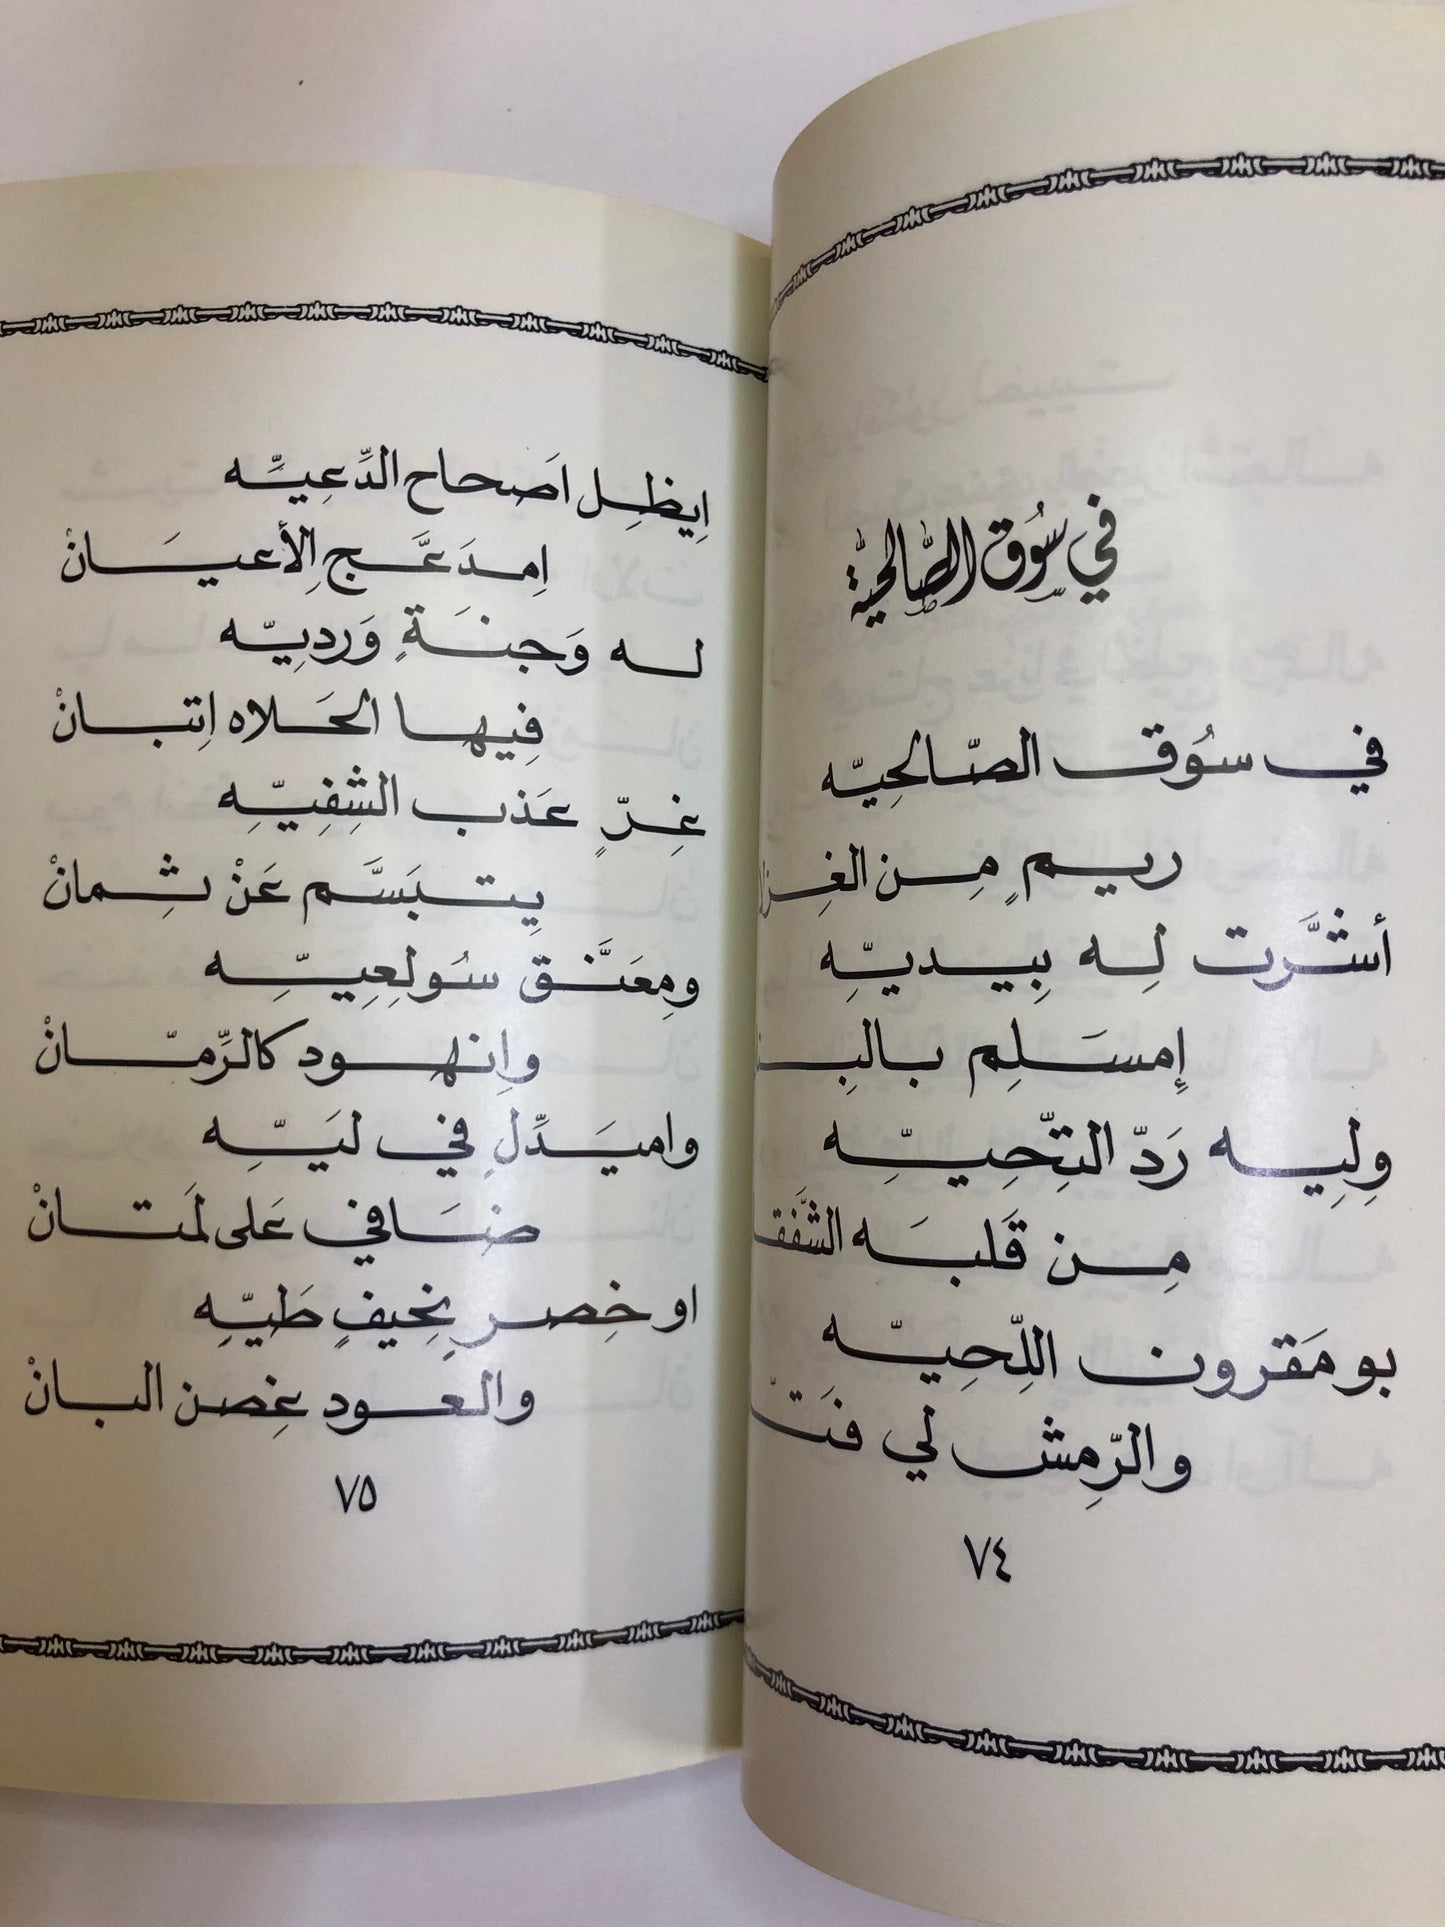 في سُوق الصَّالحيّة
في سوُق الصّالحِيّه
ريمٍ مِن
أشَّرت لِه بِيديّهِ
إمسَلِم
وِلِيه رَدّ التِّحِيّهِ
مِن قَلبَه
بو مَقرون اللِّحِيّه
والرِّمش لي
٧٤
اِيظِل اصَحاح الدِّعِيِّه
امِدَعَّج الأَعيَانْ
له وَجنَةٍ وَردِيّه
فِيها الحَلاه اِتبانْ
غِرٍّ عَذب الشِفِيّهِ
يِتبَسَّم عَنْ ثِمانْ
ومِعَنَّق سُولِعِيّهِ
واِنهود كالرِّمّانْ
واميَدِّلٍ في ليَّهِ
ضِافي عَلى لَمتانْ
او خِصرٍ نِحِيفٍ طَيّهِ
والعود غِصن البانْ
٧٥